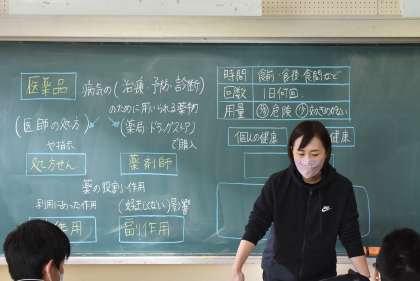 医薬品 病気の(治療・予防・診断)
のために用いられる薬物
(医師の処方 (薬局 ドラッグストア)
や指示 で購入
処方せん 薬剤師
薬の役割と作用
利用にあった作用 (好ましくない)影響
作用 副作用
時間 食前・食後・食間など
回数 1日何回
用量 危険
個人の健康 健康